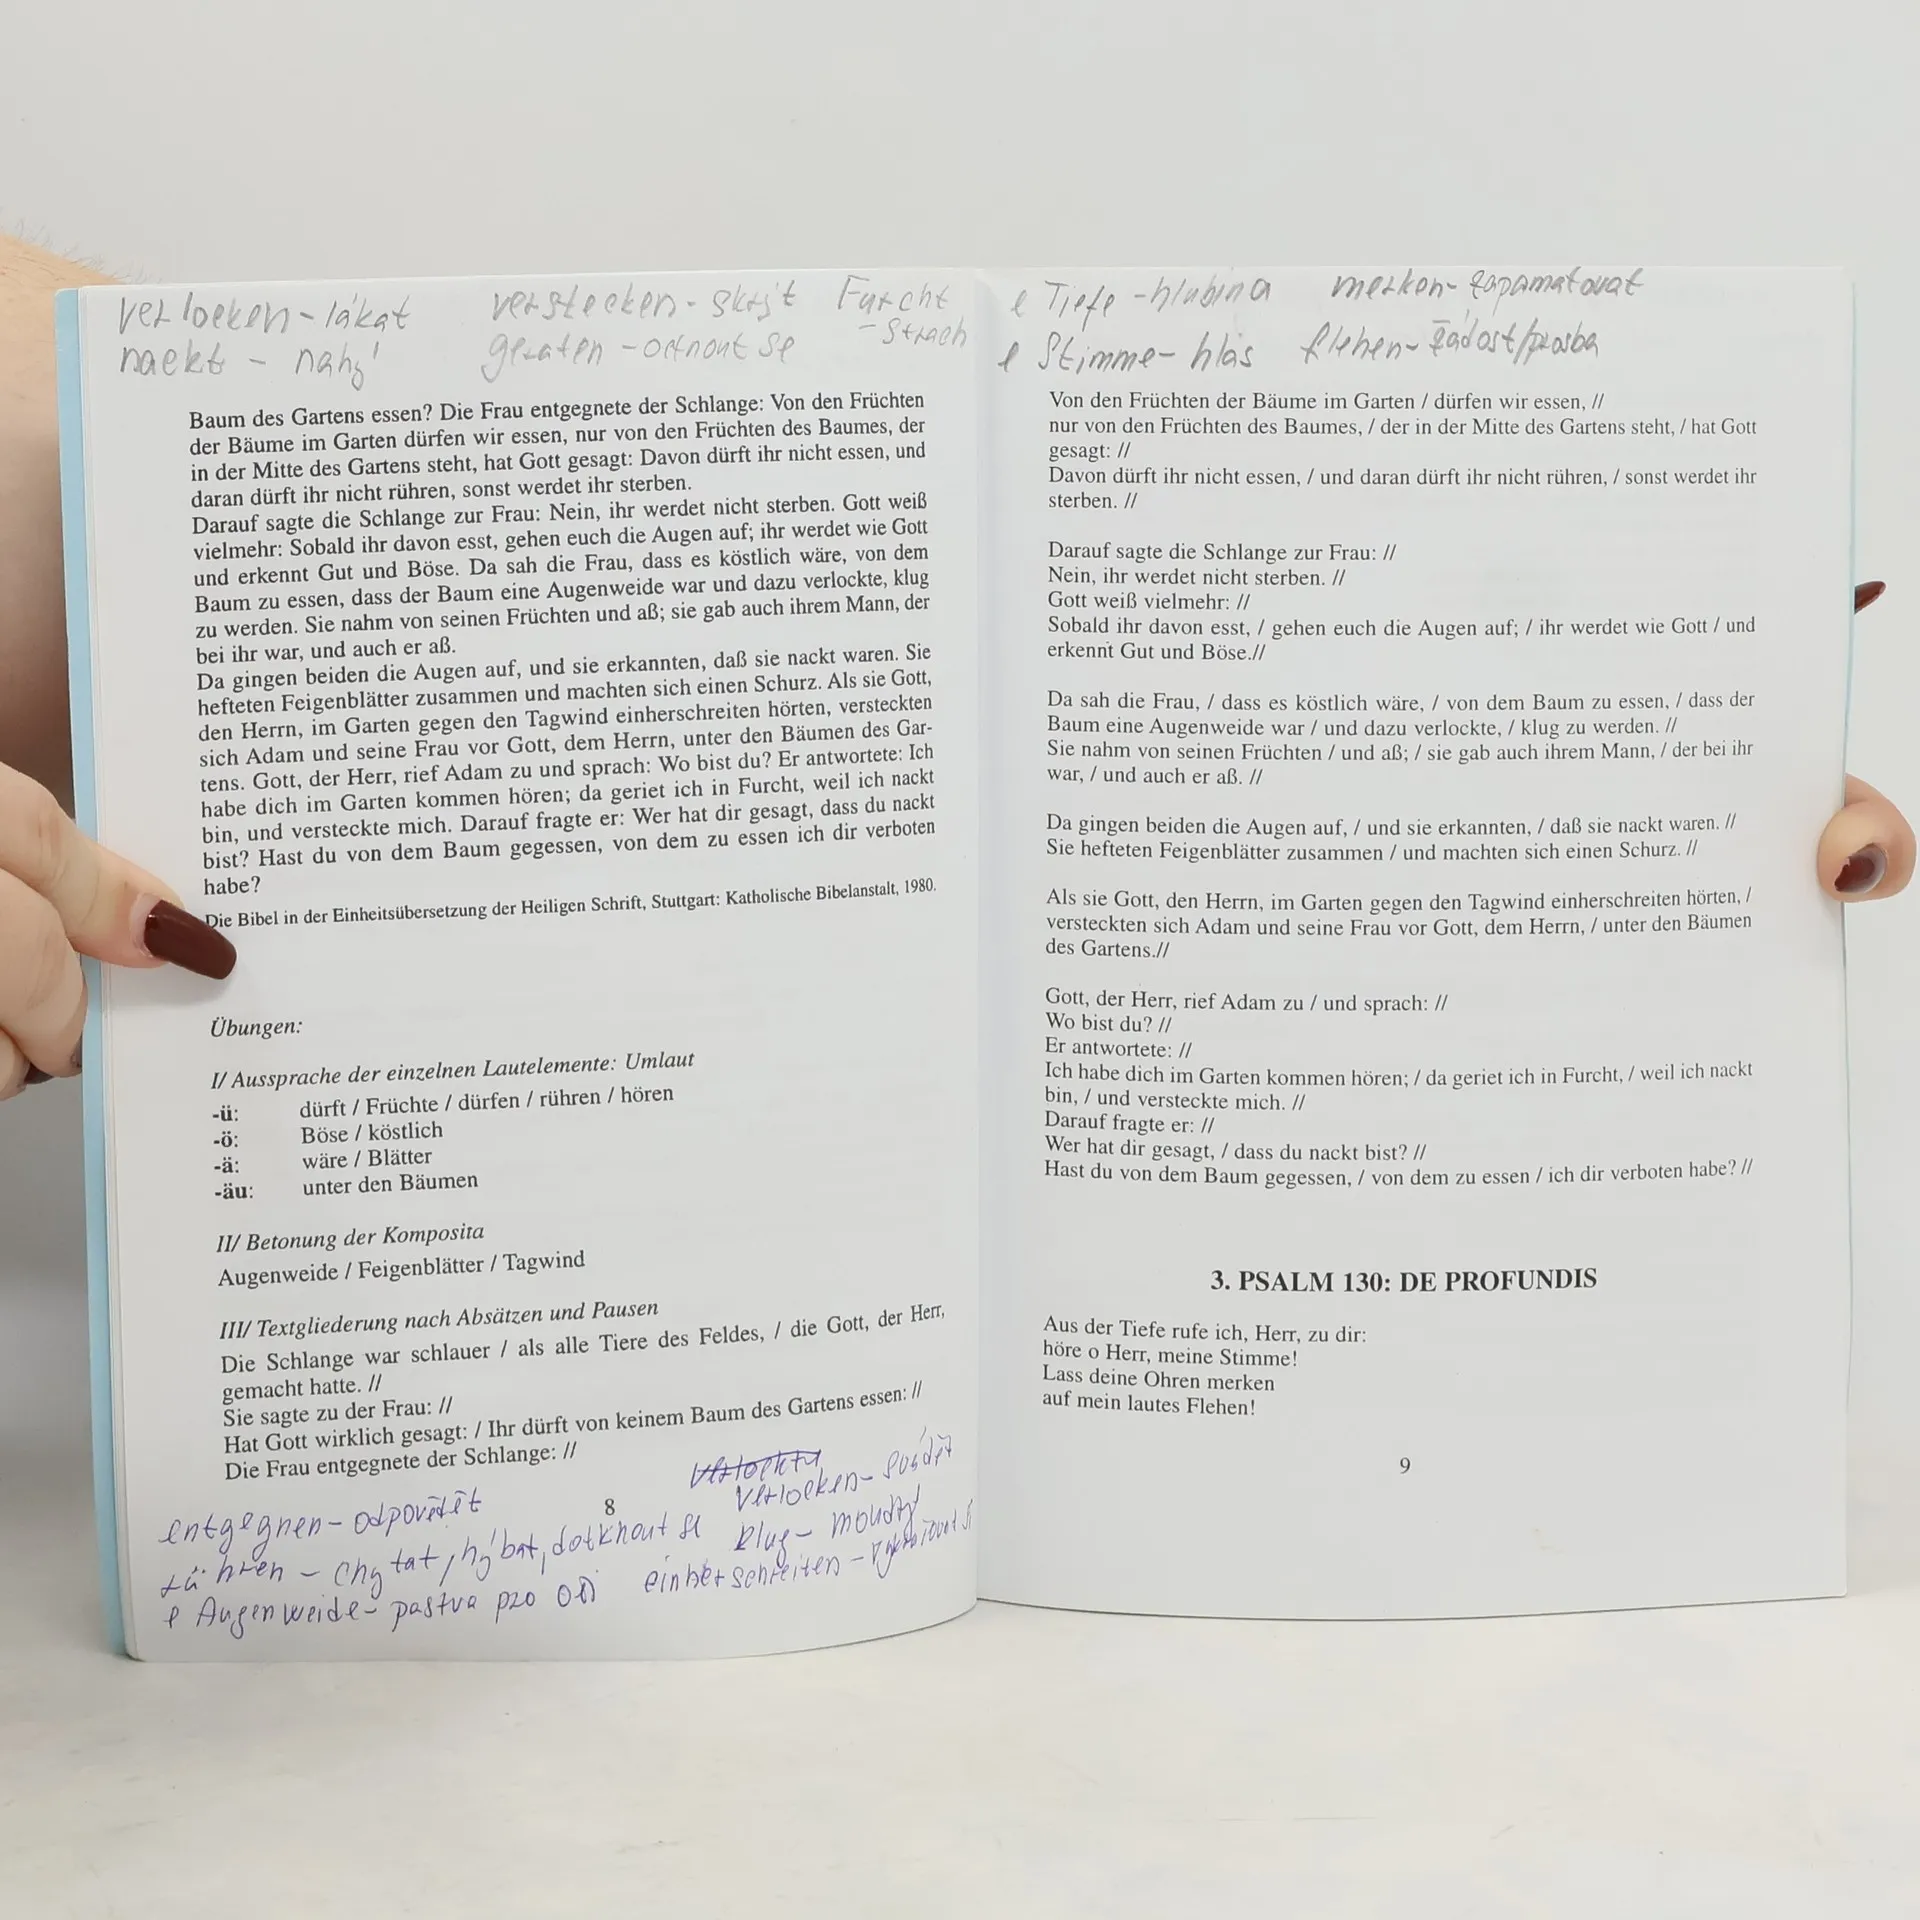 verlocken - lákat verstecken - skrýt Furcht - strach
nackt - nahý geraten - octnout se
Baum des Gartens essen? Die Frau entgegnete der Schlange: Von den Früchten
der Bäume im Garten dürfen wir essen, nur von den Früchten des Baumes, der
in der Mitte des Gartens steht, hat Gott gesagt: Davon dürft ihr nicht essen, und
daran dürft ihr nicht rühren, sonst werdet ihr sterben.
Darauf sagte die Schlange zur Frau: Nein, ihr werdet nicht sterben. Gott weiß
vielmehr: Sobald ihr davon esst, gehen euch die Augen auf; ihr werdet wie Gott
und erkennt Gut und Böse. Da sah die Frau, dass es köstlich wäre, von dem
Baum zu essen, dass der Baum eine Augenweide war und dazu verlockte, klug
zu werden. Sie nahm von seinen Früchten und aß; sie gab auch ihrem Mann, der
bei ihr war, und auch er aß.
Da gingen beiden die Augen auf, und sie erkannten, daß sie nackt waren. Sie
hefteten Feigenblätter zusammen und machten sich einen Schurz. Als sie Gott,
den Herrn, im Garten gegen den Tagwind einherschreiten hörten, versteckten
sich Adam und seine Frau vor Gott, dem Herrn, unter den Bäumen des Gar-
tens. Gott, der Herr, rief Adam zu und sprach: Wo bist du? Er antwortete: Ich
habe dich im Garten kommen hören; da geriet ich in Furcht, weil ich nackt
bin, und versteckte mich. Darauf fragte er: Wer hat dir gesagt, dass du nackt
bist? Hast du von dem Baum gegessen, von dem zu essen ich dir verboten
habe?
Die Bibel in der Einheitsübersetzung der Heiligen Schrift, Stuttgart: Katholische Bibelanstalt, 1980.
Übungen:
I/ Aussprache der einzelnen Lautelemente: Umlaut
-ü: dürft / Früchte / dürfen / rühren / hören
-ö: Böse / köstlich
-ä: wäre / Blätter
-äu: unter den Bäumen
II/ Betonung der Komposita
Augenweide / Feigenblätter / Tagwind
III/ Textgliederung nach Absätzen und Pausen
Die Schlange war schlauer / als alle Tiere des Feldes, / die Gott, der Herr,
gemacht hatte. //
Sie sagte zu der Frau: //
Hat Gott wirklich gesagt: / Ihr dürft von keinem Baum des Gartens essen: //
Die Frau entgegnete der Schlange: //
8
entgegnen - odpovědět verlocken - svádět
rühren - chytat, hýbat, dotknout se klug - moudrý
e Augenweide - pastva pro oči einherschreiten -
e Tiefe - hlubina merken - zapamatovat
e Stimme - hlas flehen - žádost/prosba
Von den Früchten der Bäume im Garten / dürfen wir essen, //
nur von den Früchten des Baumes, / der in der Mitte des Gartens steht, / hat Gott
gesagt: //
Davon dürft ihr nicht essen, / und daran dürft ihr nicht rühren, / sonst werdet ihr
sterben. //
Darauf sagte die Schlange zur Frau: //
Nein, ihr werdet nicht sterben. //
Gott weiß vielmehr: //
Sobald ihr davon esst, / gehen euch die Augen auf; / ihr werdet wie Gott / und
erkennt Gut und Böse.//
Da sah die Frau, / dass es köstlich wäre, / von dem Baum zu essen, / dass der
Baum eine Augenweide war / und dazu verlockte, / klug zu werden. //
Sie nahm von seinen Früchten / und aß; / sie gab auch ihrem Mann, / der bei ihr
war, / und auch er aß. //
Da gingen beiden die Augen auf, / und sie erkannten, / daß sie nackt waren. //
Sie hefteten Feigenblätter zusammen / und machten sich einen Schurz. //
Als sie Gott, den Herrn, im Garten gegen den Tagwind einherschreiten hörten, /
versteckten sich Adam und seine Frau vor Gott, dem Herrn, / unter den Bäumen
des Gartens.//
Gott, der Herr, rief Adam zu / und sprach: //
Wo bist du? //
Er antwortete: //
Ich habe dich im Garten kommen hören; / da geriet ich in Furcht, / weil ich nackt
bin, / und versteckte mich. //
Darauf fragte er: //
Wer hat dir gesagt, / dass du nackt bist? //
Hast du von dem Baum gegessen, / von dem zu essen / ich dir verboten habe? //
3. PSALM 130: DE PROFUNDIS
Aus der Tiefe rufe ich, Herr, zu dir:
höre o Herr, meine Stimme!
Lass deine Ohren merken
auf mein lautes Flehen!
9